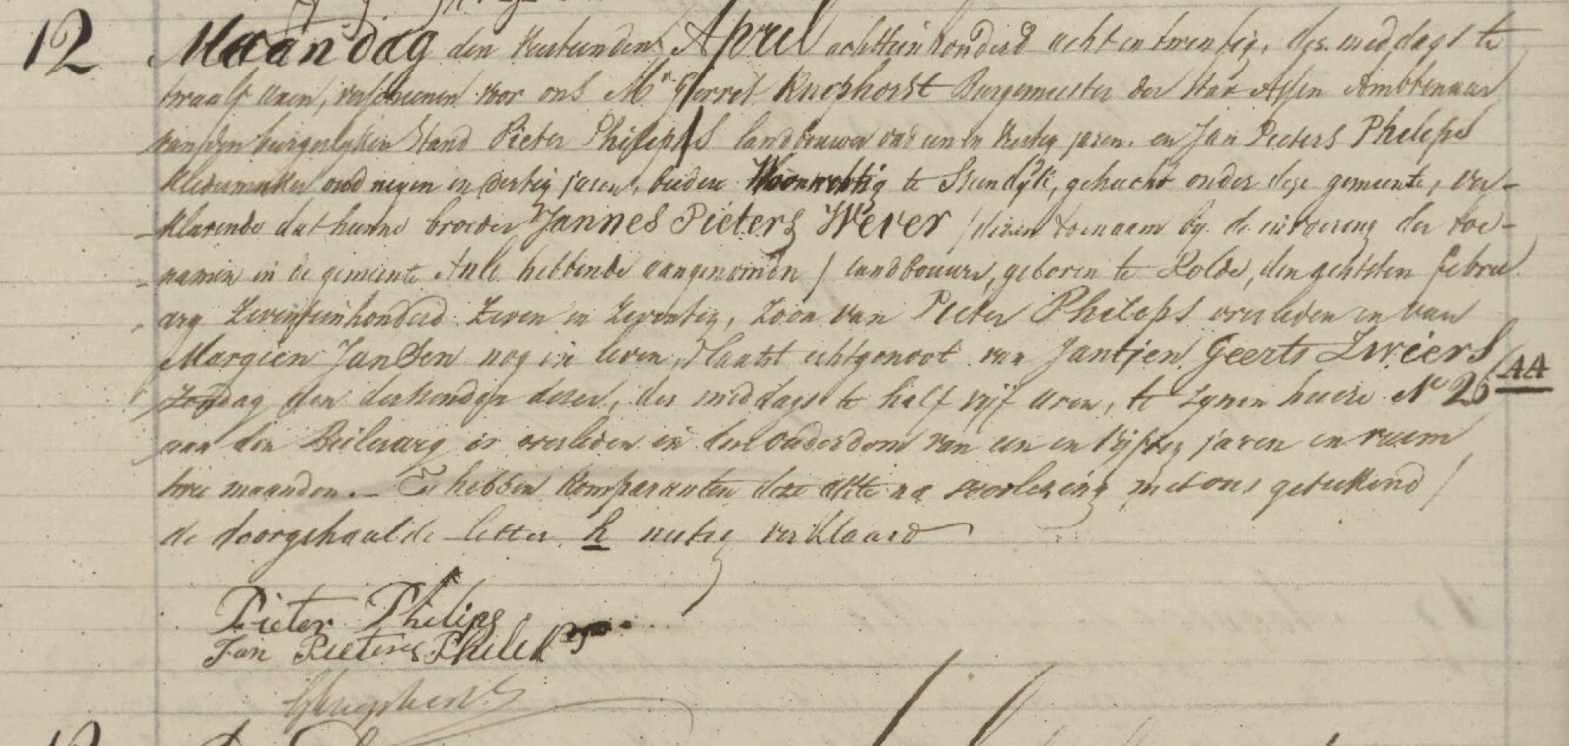 12 Maandag den veertienden April achttienhonderd acht en twentig, des middags te
twaalf uren, verschenen voor ons Mr. Gerret Kniphorst Burgemeester der Stad Assen Ambtenaar
van den burgerlijken Stand Pieter Philepps landbouwer oud een en veertig jaren. en Jan Pieters Phileps
kleermaker oud negen en dertig jaren, beidere Woonachtig te gehucht onder deze gemeente, ver-
klarende dat hunne broeder Jannes Pieters Wever / dezen toenaam by de invoering der toe-
namen in de gemeente Anlo hebbende aangenomen / landbouwer, geboren te Rolde, den achtsten febru
ary Zeventienhonderd Zeven en Zeventig, Zoon van Pieter Phileps overleden en van
Margien Jansen nog in leven, laatst echtgenoot van Jantjen Geerts Zwiers
Zondag den dertienden dezer, des middags te half vijf uren, te zynen huize No 26 AA
aan den Beilervaart is overleden in den ouderdom van een en vijftig jaren en ruim
twee maanden. _ En hebben komparanten deze akte na voorlezing met ons getekend /
de doorgehaalde letter h nietig verklaard
Pieter Philips
Jan Pieters Phileps
GKniphorst